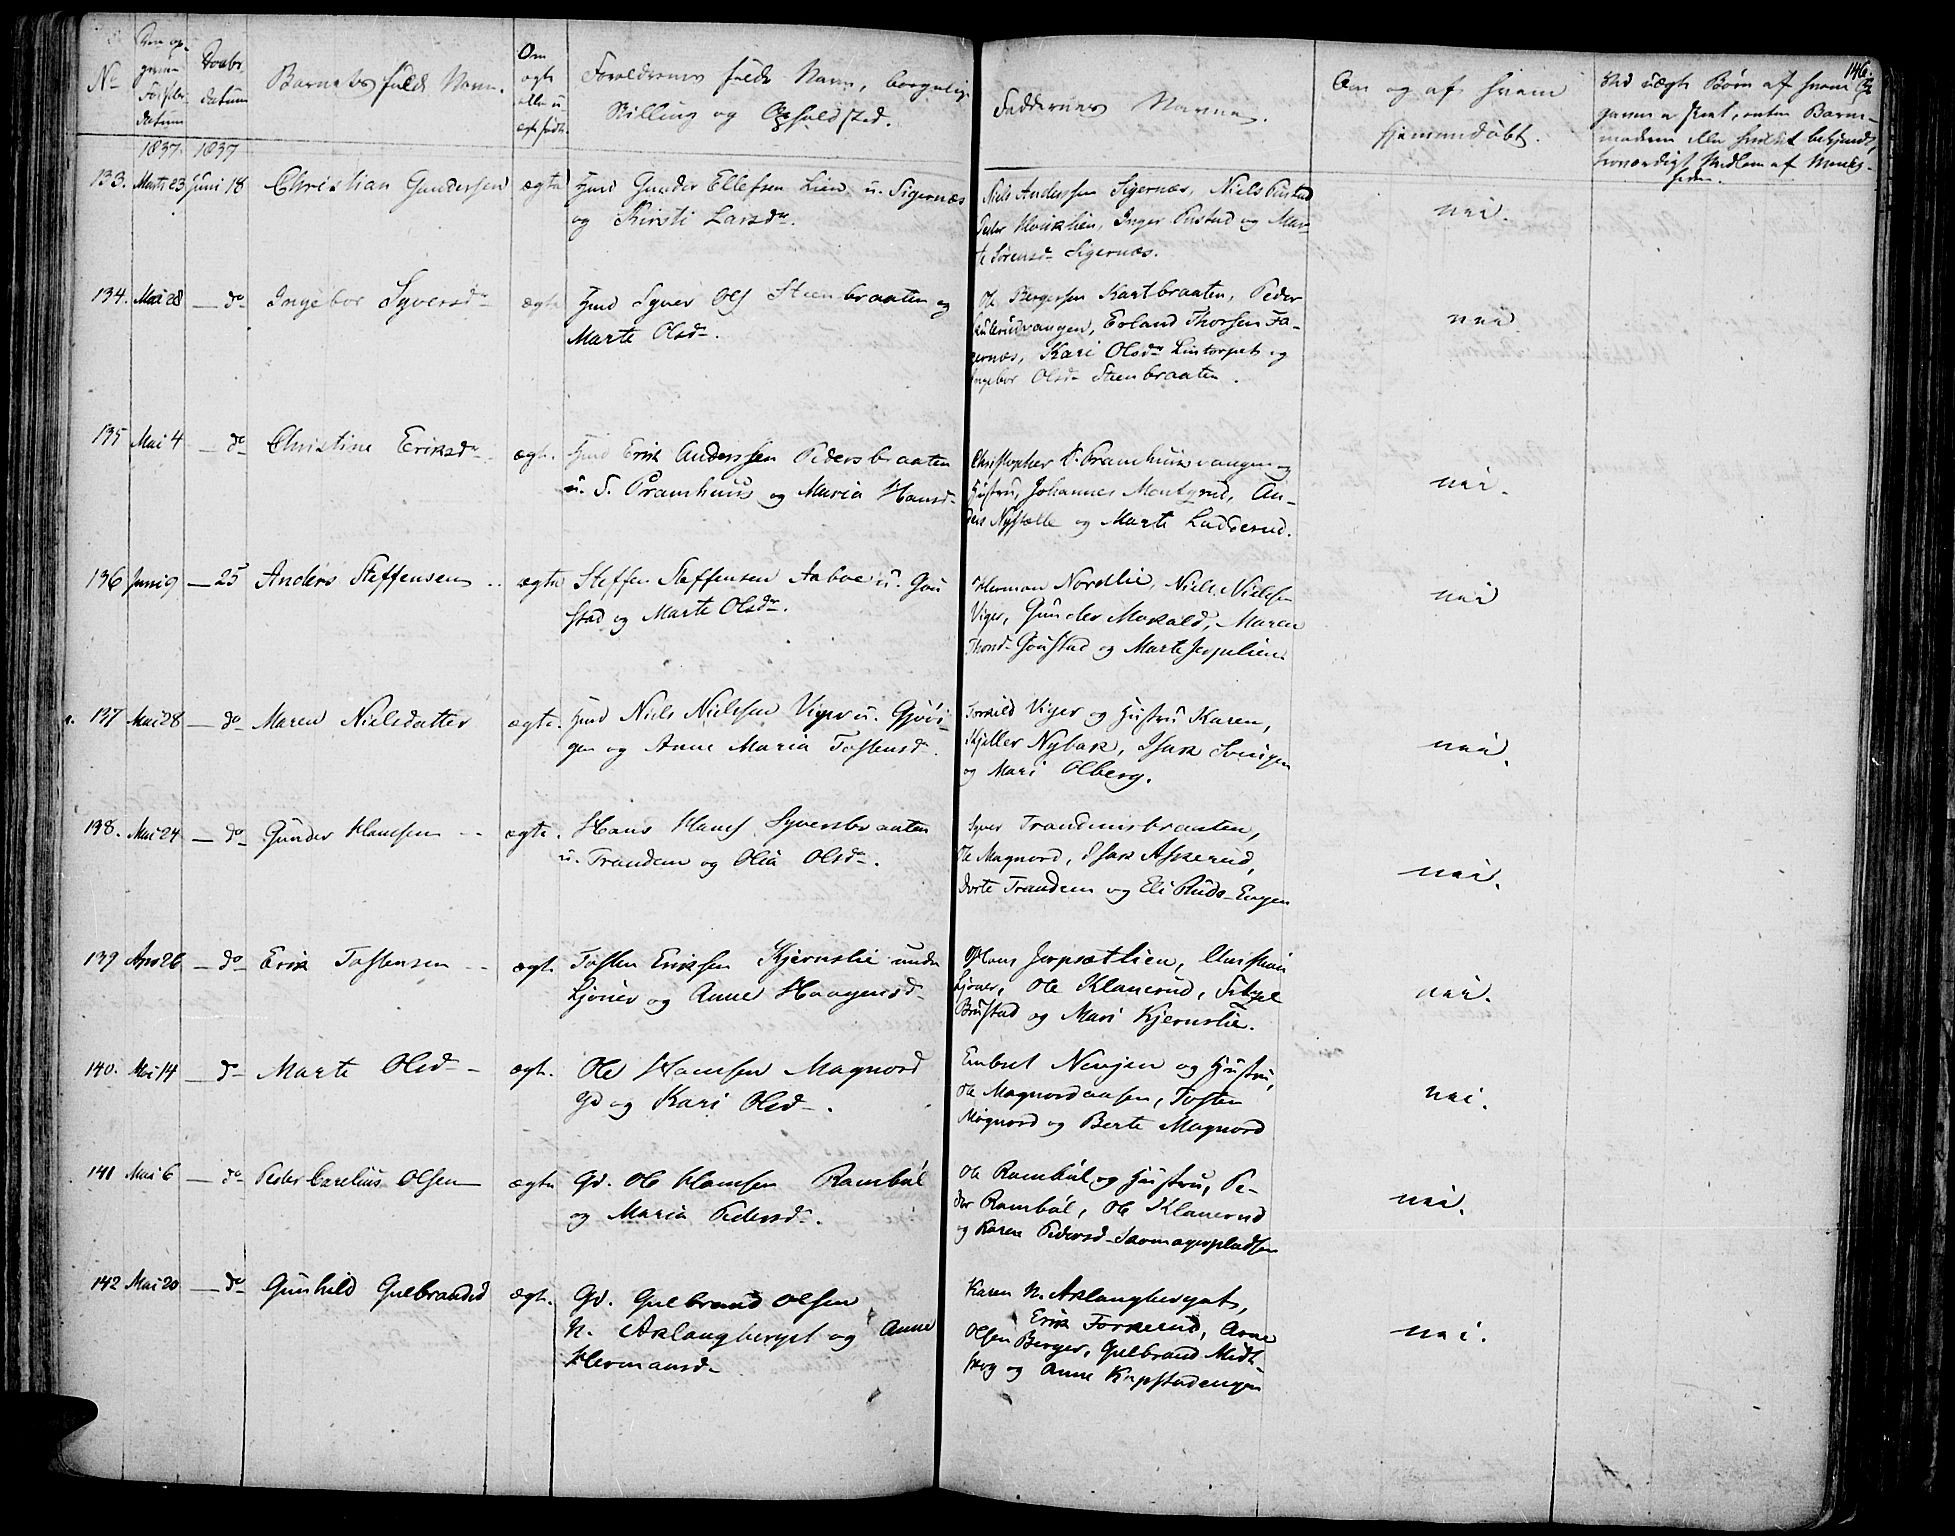 146.
No
Den op-
given
Fødsels-
datum
Daabs-
datum
Barnets fulde Navn.
Om
ægte
eller u-
ægte født.
Forældrenes fulde Navn, borgerlige
Stilling og Opholdsted.
Faddernes Navne.
Om og af hvem
hjemmedøbt.
Ved uægte Børn af hvem
1837. 1837
133. Marts 23 Juni 18 Christian Gundersen ægte Hmd Gunder Ellefsen Lien u. Sigernæs
og Kirsti Larsdr.
Niels Anderssen Sigernæs, Niels Pustad
Peder Lien, Inger Pustad og Mar-
te Sørensdr Sigernæs.
nei.
134. Mai 28 — do Ingebor Syversdr ægte Hmd Syver Ols Steenbraaten og
Marte Olsdr.
Ole Bergersen Kartbraaten, Peder
Erland Thorsen Fa-
gernæs, Kari Olsdr og
Ingebor Olsdr Steenbraaten.
nei.
135 Mai 4 — do Christine Eriksdr ægt. Hmd Erik Anderssen Pedersbraaten
u. S. Pramhuus og Maria Hansd
Christopher P. Pramhuusvangen og
Hustru, Johannes An-
ders og Marte Ludderud.
nei.
136 Juni 9 — 25 Anders Steffensen ægte Steffen Steffensen Aaboe u. Gou
stad og Marte Olsdr.
Herman Nordlie, Niels Nielsen
Viger, Gunder Maren
Goustad og Marte
nei
137 Mai 28 — do Maren Nielsdatter ægte. Hmd Niels Nielsen Viger u. Gjøvi-
gen og Anne Maria Tostensd.
Torkild Viger og Hustru Karen,
Nybak, Isak
og Mari Olberg.
nei.
138. Mai 24 — do Gunder Hansen ægte. Hans Hans Syversbraaten
u. Trandem og Olia Olsdr.
Syver Trandemsbraaten,
Ole Magnord, Isak Askerud,
Dorte Trandem og Eli Ruds-Engen
nei.
139 Apr 26 — do Erik Tostensen ægt. Tosten Eriksen Kjernslie under
Ljøner og Anne Haagensd
Hans Jerpsetlien, Christian
Ljøner, Ole Klanerud,
Brustad og Mari Kjernslie.
nei.
140. Mai 14 — do Marte Olsd ægt. Ole Hansen Magnord
Gd og Kari Olsd.
Embret Nevjen og Hustru,
Ole Magnordaasen, Tosten
Magnord og Berte Magnord
nei.
141 Mai 6 — do Peder Carelius Olsen ægte Gd. Ole Hansen Rambøl
og Maria Pedersdr.
Ole Rambøl og Hustru, Pe-
der Rambøl, Ole Klanerud
og Karen Pedersd
nei.
142 Mai 20 — do Gunhild Gulbrandsd ægt. Gd. Gulbrand Olsen
N. Aklangberget og Anne
Hermansd
Karen N. Aklangberget,
Erik Forkerud, Arne
Olsen Berger, Gulbrand Midt-
skog og Anne Kropstadengen
nei.